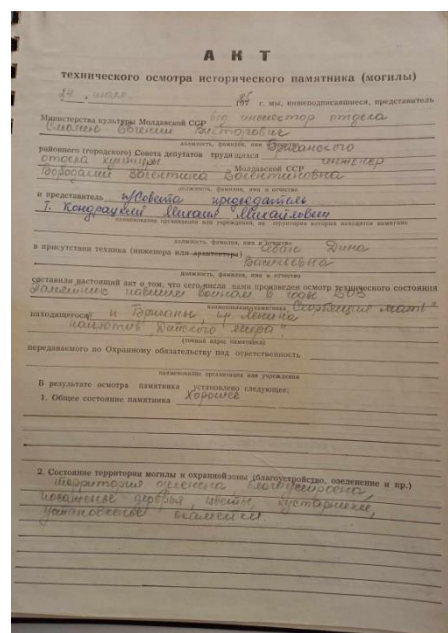 АКТ
технического осмотра исторического памятника (могилы)
24 . июля 197 г. мы, нижеподписавшиеся, представитель
Министерства культуры Молдавской ССР инспектор отдела
Евгений Викторович
должность, фамилия, имя и отчество
районного (городского) Совета депутатов трудящихся Бричанского
отдела культуры Молдавской ССР инженер
Валентина Валентиновна
должность, фамилия, имя и отчество
и представитель п/Совета председатель
Т. Кондрацкий Михаил Михайлович
наименование организации или учреждения, на территории которых находится памятник
должность, фамилия, имя и отчество
в присутствии техника (инженера или архитектора) Дина
должность, фамилия, имя и отчество
составили настоящий акт о том, что сего числа нами произведен осмотр технического состояния
Памятник павшим воинам в годы ВОВ
наименование памятника "Скорбящая мать"
находящегося п Бричаны, ул. Ленина
(точный адрес памятника)
передаваемого по Охранному обязательству под ответственность
наименование организации или учреждения
В результате осмотра памятника установлено следующее:
1. Общее состояние памятника Хорошее
2. Состояние территории могилы и охранной зоны (благоустройство, озеленение и пр.)
Территория озеленена благоустроена,
деревья, цветы кустарники,
скамейки